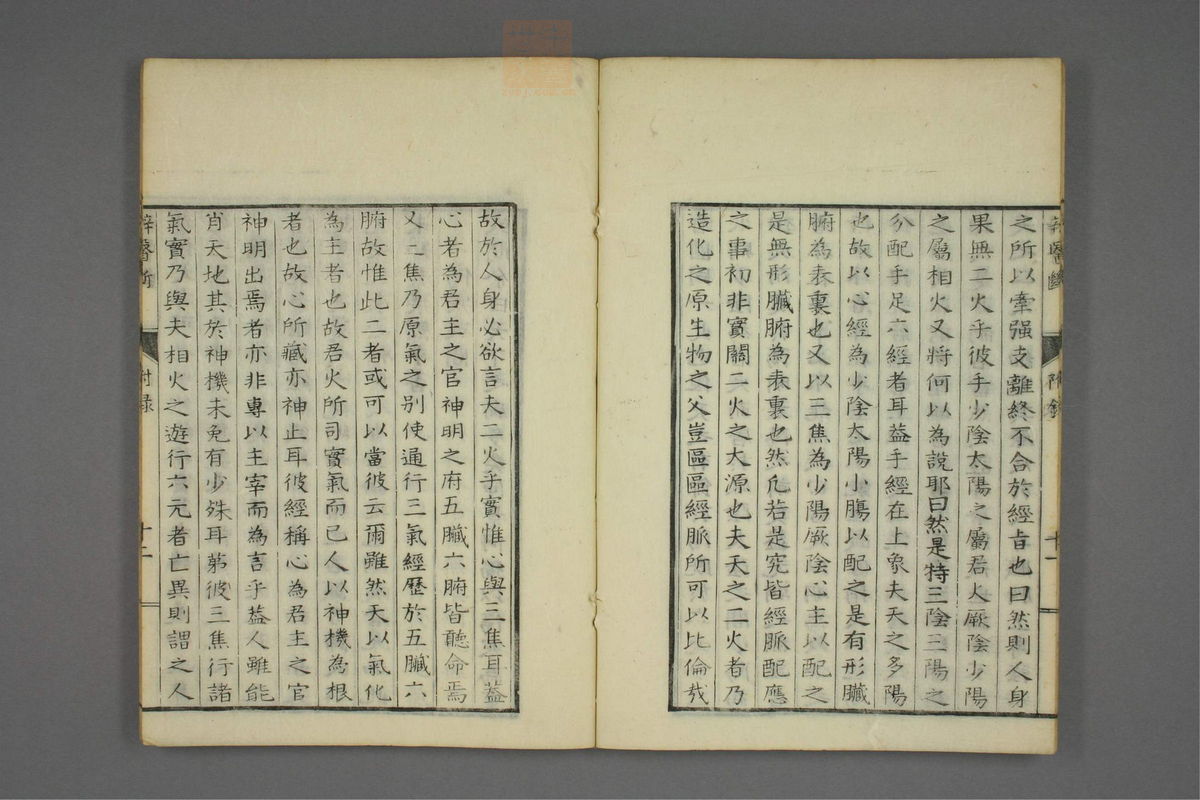 之所以牽强支離終不合於經旨也曰然則人身
果無二火乎彼手少陰太陽之屬君火厥陰少陽
之屬相火又將何以為說耶曰然是特三陰三陽之
分配手足六經者耳蓋手經在上上象夫天之多陽
也故以心經為少陰太陽小膓以配之是有形臟
腑為表裏也又以三焦為少陽厥陰心主以配之
是無形臟腑為表裏也然凢若是究皆經脈配應
之事初非實關二火之大源也夫天之二火者乃
造化之原生物之父豈區區經脈所可以比倫㢤
十一
故於人身必欲言夫二火乎實惟心與三焦耳蓋
心者為君主之官神明之府五臟六腑皆聽命焉
又三焦乃原氣之别使通行三氣經歷於五臟六
腑故惟此二者或可以當彼云爾雖然天以氣化
為主者也故君火所司實氣而已人以神機為根
者也故心所藏亦神止耳彼經稱心為君主之官
神明出焉者亦非專以主宰而為言乎蓋人雖能
肖天地其於神機未免有少殊耳苐彼三焦行諸
氣實乃與夫相火之遊行六元者亡異則謂之人
辛醫
附錄
十二